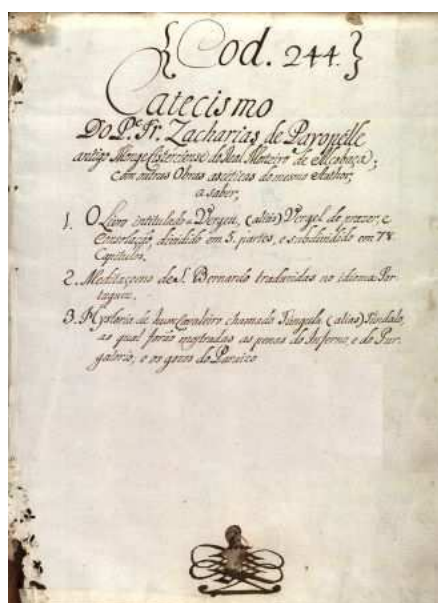 {Cod. 244.}
Catecismo
Do P.e Fr. Zacharias de Payopelle
antigo Monge Cisterciense do Real Mosteiro de Alcobaça;
com outras Obras asceticas do mesmo Author,
a saber,
1. O Livro intitulado = Vergeu, (aliàs) Vergel do prazer, e
Consolação, dividido em 5. partes, e subdividido em 78
Capitulos.
2. Meditaçoens de S. Bernardo traduzidas no idioma Por-
tuguez.
3. Hystoria de hum Cavaleiro chamado Tungulo, (alias) Tundalo,
ao qual forão mostradas as penas do Inferno, e do Pur-
gatorio, e os gozos do Paraizo